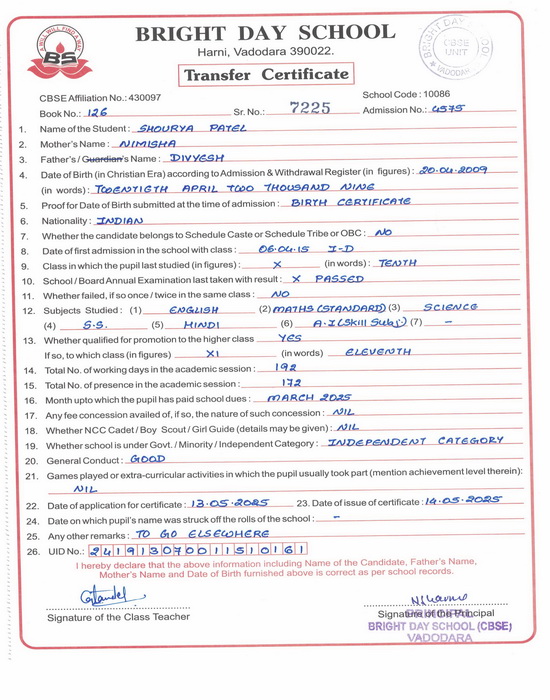 A WILL WILL FIND A WAY
BS
BRIGHT DAY SCHOOL
Harni, Vadodara 390022.
Transfer Certificate
BRIGHT DAY SCHOOL
CBSE
UNIT
VADODARA
CBSE Affiliation No.: 430097 School Code : 10086
Book No.: 126 Sr. No.: 7225 Admission No.: 4575
1. Name of the Student : SHOURYA PATEL
2. Mother's Name : NIMISHA
3. Father's / Guardian's Name : DIVYESH
4. Date of Birth (in Christian Era) according to Admission & Withdrawal Register (in figures) : 20.04.2009
(in words) : TWENTIGTH APRIL TWO THOUSAND NINE
5. Proof for Date of Birth submitted at the time of admission : BIRTH CERTIFICATE
6. Nationality : INDIAN
7. Whether the candidate belongs to Schedule Caste or Schedule Tribe or OBC : NO
8. Date of first admission in the school with class : 06.04.15 I-D
9. Class in which the pupil last studied (in figures) : X (in words) : TENTH
10. School / Board Annual Examination last taken with result : X PASSED
11. Whether failed, if so once / twice in the same class : NO
12. Subjects Studied : (1) ENGLISH (2) MATHS (STANDARD) (3) SCIENCE
(4) S.S. (5) HINDI (6) A.I (Skill Subj.) (7) -
13. Whether qualified for promotion to the higher class YES
If so, to which class (in figures) XI (in words) ELEVENTH
14. Total No. of working days in the academic session : 192
15. Total No. of presence in the academic session : 172
16. Month upto which the pupil has paid school dues : MARCH 2025
17. Any fee concession availed of, if so, the nature of such concession : NIL
18. Whether NCC Cadet / Boy Scout / Girl Guide (details may be given) : NIL
19. Whether school is under Govt. / Minority / Independent Category : INDEPENDENT CATEGORY
20. General Conduct : GOOD
21. Games played or extra-curricular activities in which the pupil usually took part (mention achievement level therein):
NIL
22. Date of application for certificate : 13.05.2025 23. Date of issue of certificate : 14.05.2025
24. Date on which pupil's name was struck off the rolls of the school : -
25. Any other remarks : TO GO ELSEWHERE
26. UID No.: 241913070011510161
I hereby declare that the above information including Name of the Candidate, Father's Name,
Mother's Name and Date of Birth furnished above is correct as per school records.
Signature of the Class Teacher Signature of the Principal
PRINCIPAL
BRIGHT DAY SCHOOL (CBSE)
VADODARA